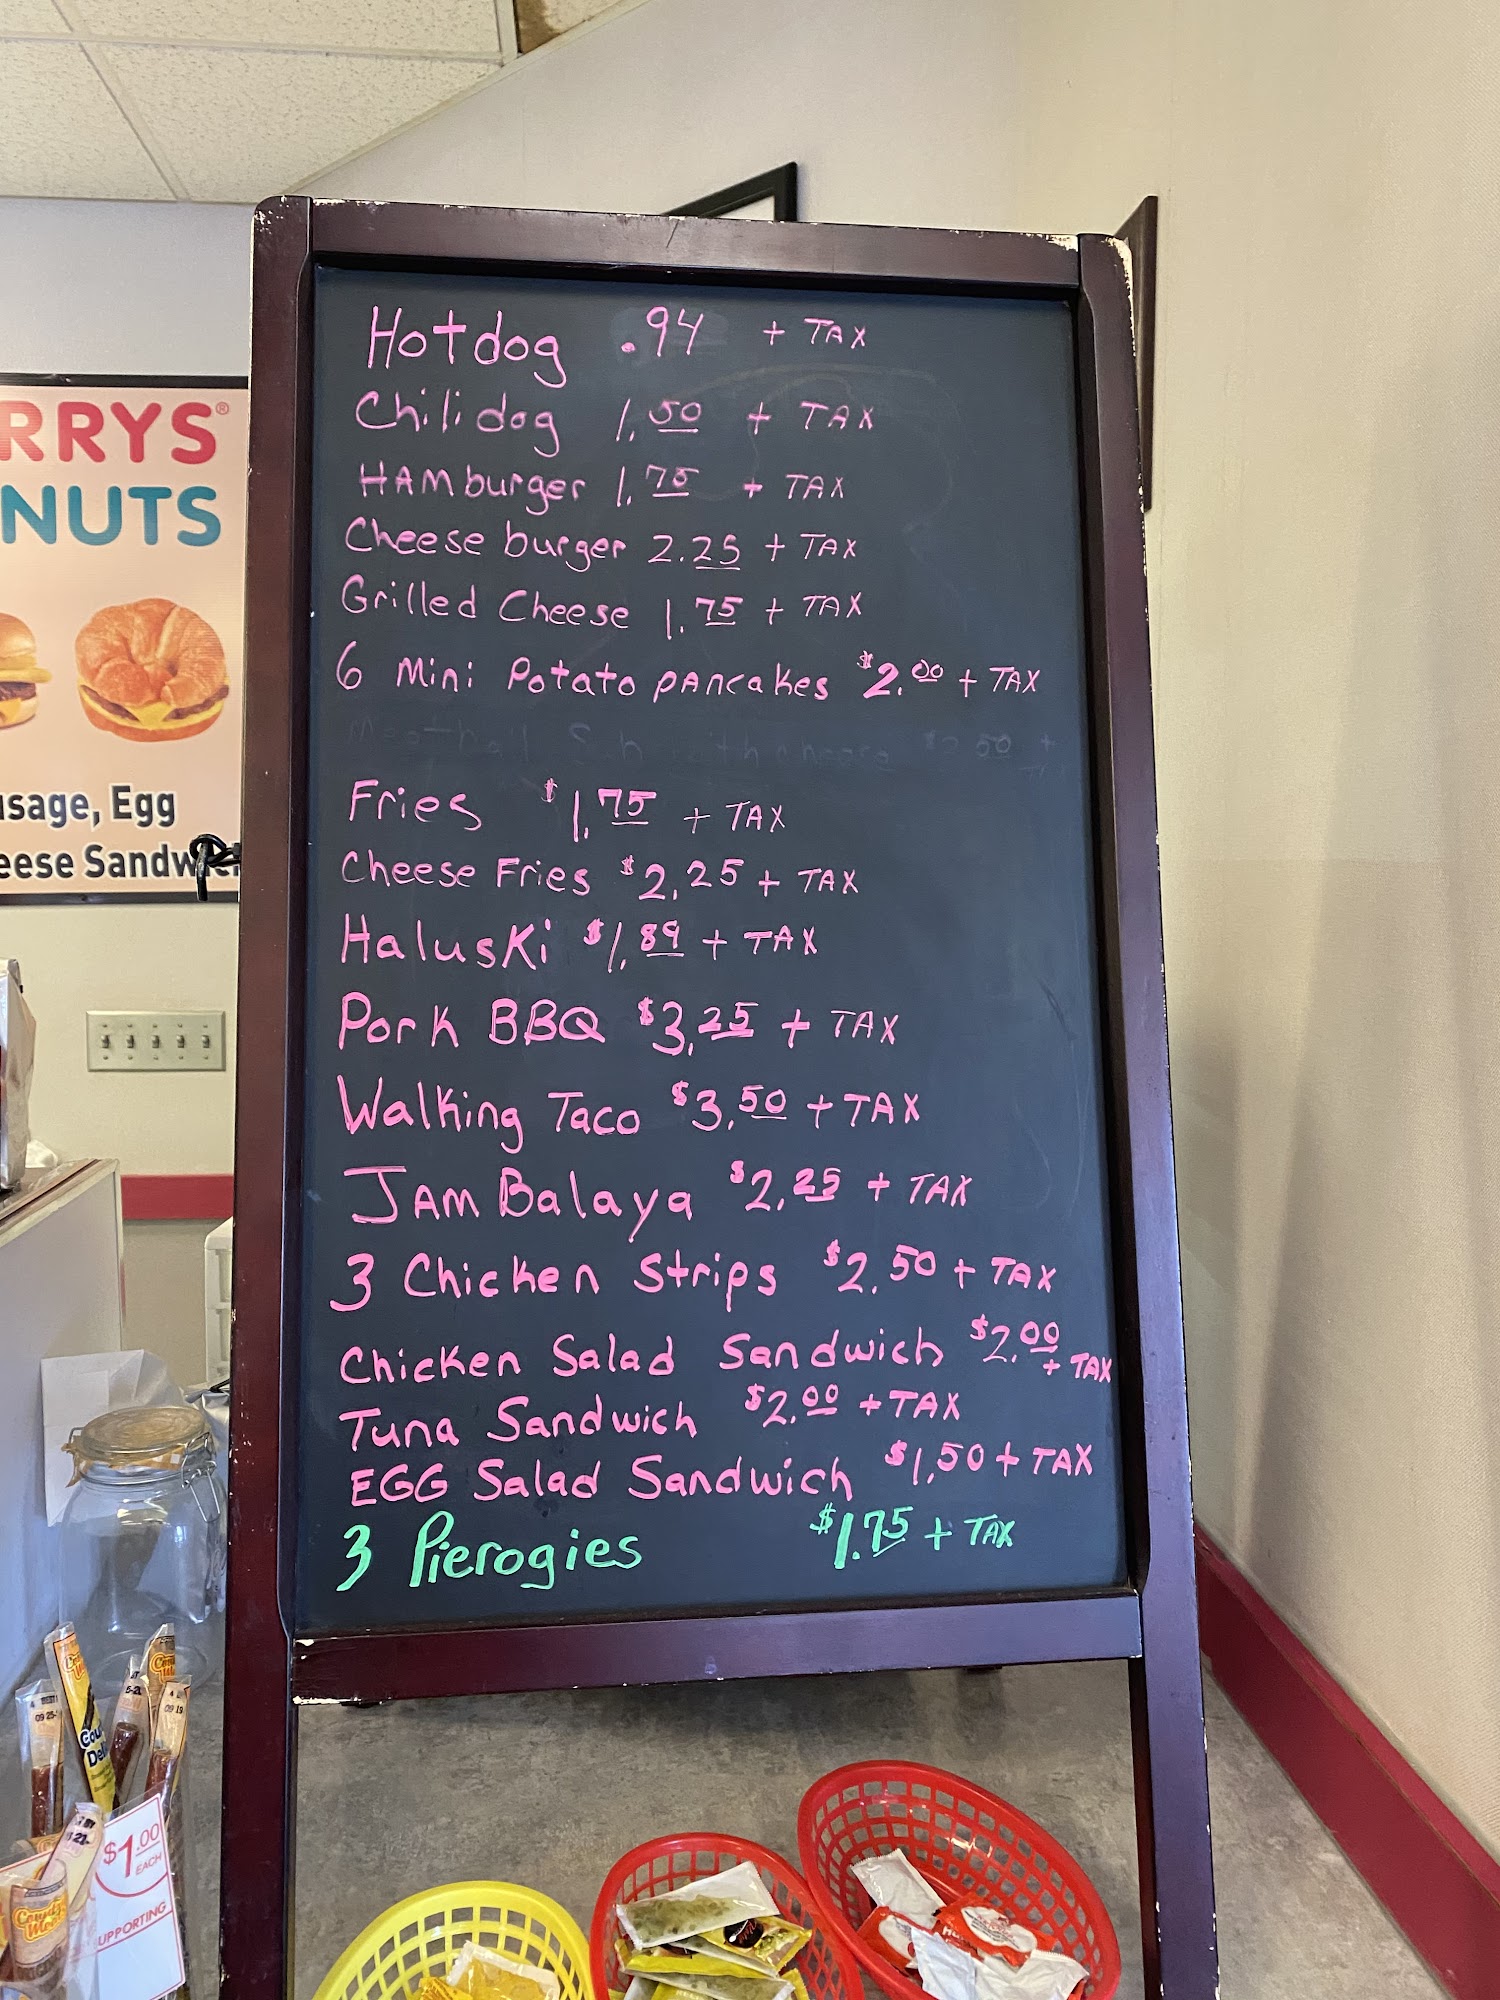 Hotdog .94 + TAX
Chilidog 1.50 + TAX
HAMburger 1.75 + TAX
Cheese burger 2.25 + TAX
Grilled Cheese 1.75 + TAX
6 Mini Potato pancakes $2.00 + TAX
Meatball Sub with cheese $2.50 +
Fries $1.75 + TAX
Cheese Fries $2.25 + TAX
HalusKi $1.89 + TAX
Pork BBQ $3.25 + TAX
Walking Taco $3.50 + TAX
JAMBalaya $2.25 + TAX
3 Chicken Strips $2.50 + TAX
Chicken Salad Sandwich $2.00 + TAX
Tuna Sandwich $2.00 + TAX
EGG Salad Sandwich $1.50 + TAX
3 Pierogies $1.75 + TAX
RRYS®
NUTS
usage, Egg
eese Sandwi
$1.00
EACH
UPPORTING